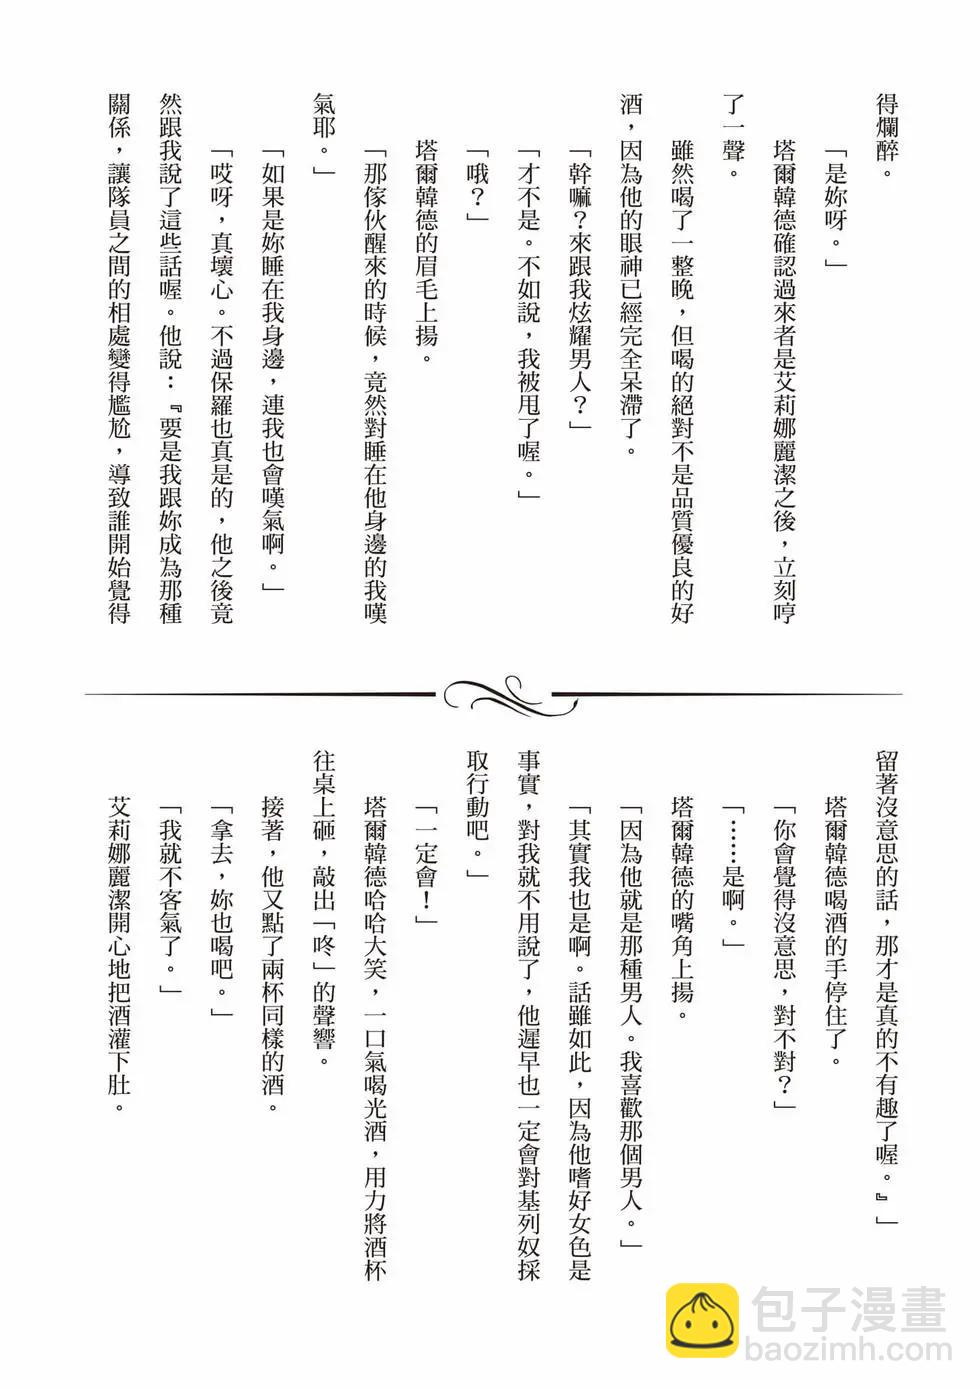 得爛醉。
「是妳呀。」
塔爾韓德確認過來者是艾莉娜麗潔之後，立刻哼
了一聲。
雖然喝了一整晚，但喝的絕對不是品質優良的好
酒，因為他的眼神已經完全呆滯了。
「幹嘛？來跟我炫耀男人？」
「才不是。不如說，我被甩了喔。」
「哦？」
塔爾韓德的眉毛上揚。
「那傢伙醒來的時候，竟然對睡在他身邊的我嘆
氣耶。」
「如果是妳睡在我身邊，連我也會嘆氣啊。」
「哎呀，真壞心。不過保羅也真是的，他之後竟
然跟我說了這些話喔。他說：『要是我跟妳成為那種
關係，讓隊員之間的相處變得尷尬，導致誰開始覺得
留著沒意思的話，那才是真的不有趣了喔。』」
塔爾韓德喝酒的手停住了。
「你會覺得沒意思，對不對？」
「……是啊。」
塔爾韓德的嘴角上揚。
「因為他就是那種男人。我喜歡那個男人。」
「其實我也是啊。話雖如此，因為他嗜好女色是
事實，對我就不用說了，他遲早也一定會對基列奴採
取行動吧。」
「一定會！」
塔爾韓德哈哈大笑，一口氣喝光酒，用力將酒杯
往桌上砸，敲出「咚」的聲響。
接著，他又點了兩杯同樣的酒。
「拿去，妳也喝吧。」
「我就不客氣了。」
艾莉娜麗潔開心地把酒灌下肚。
包子漫畫
baozimh.com